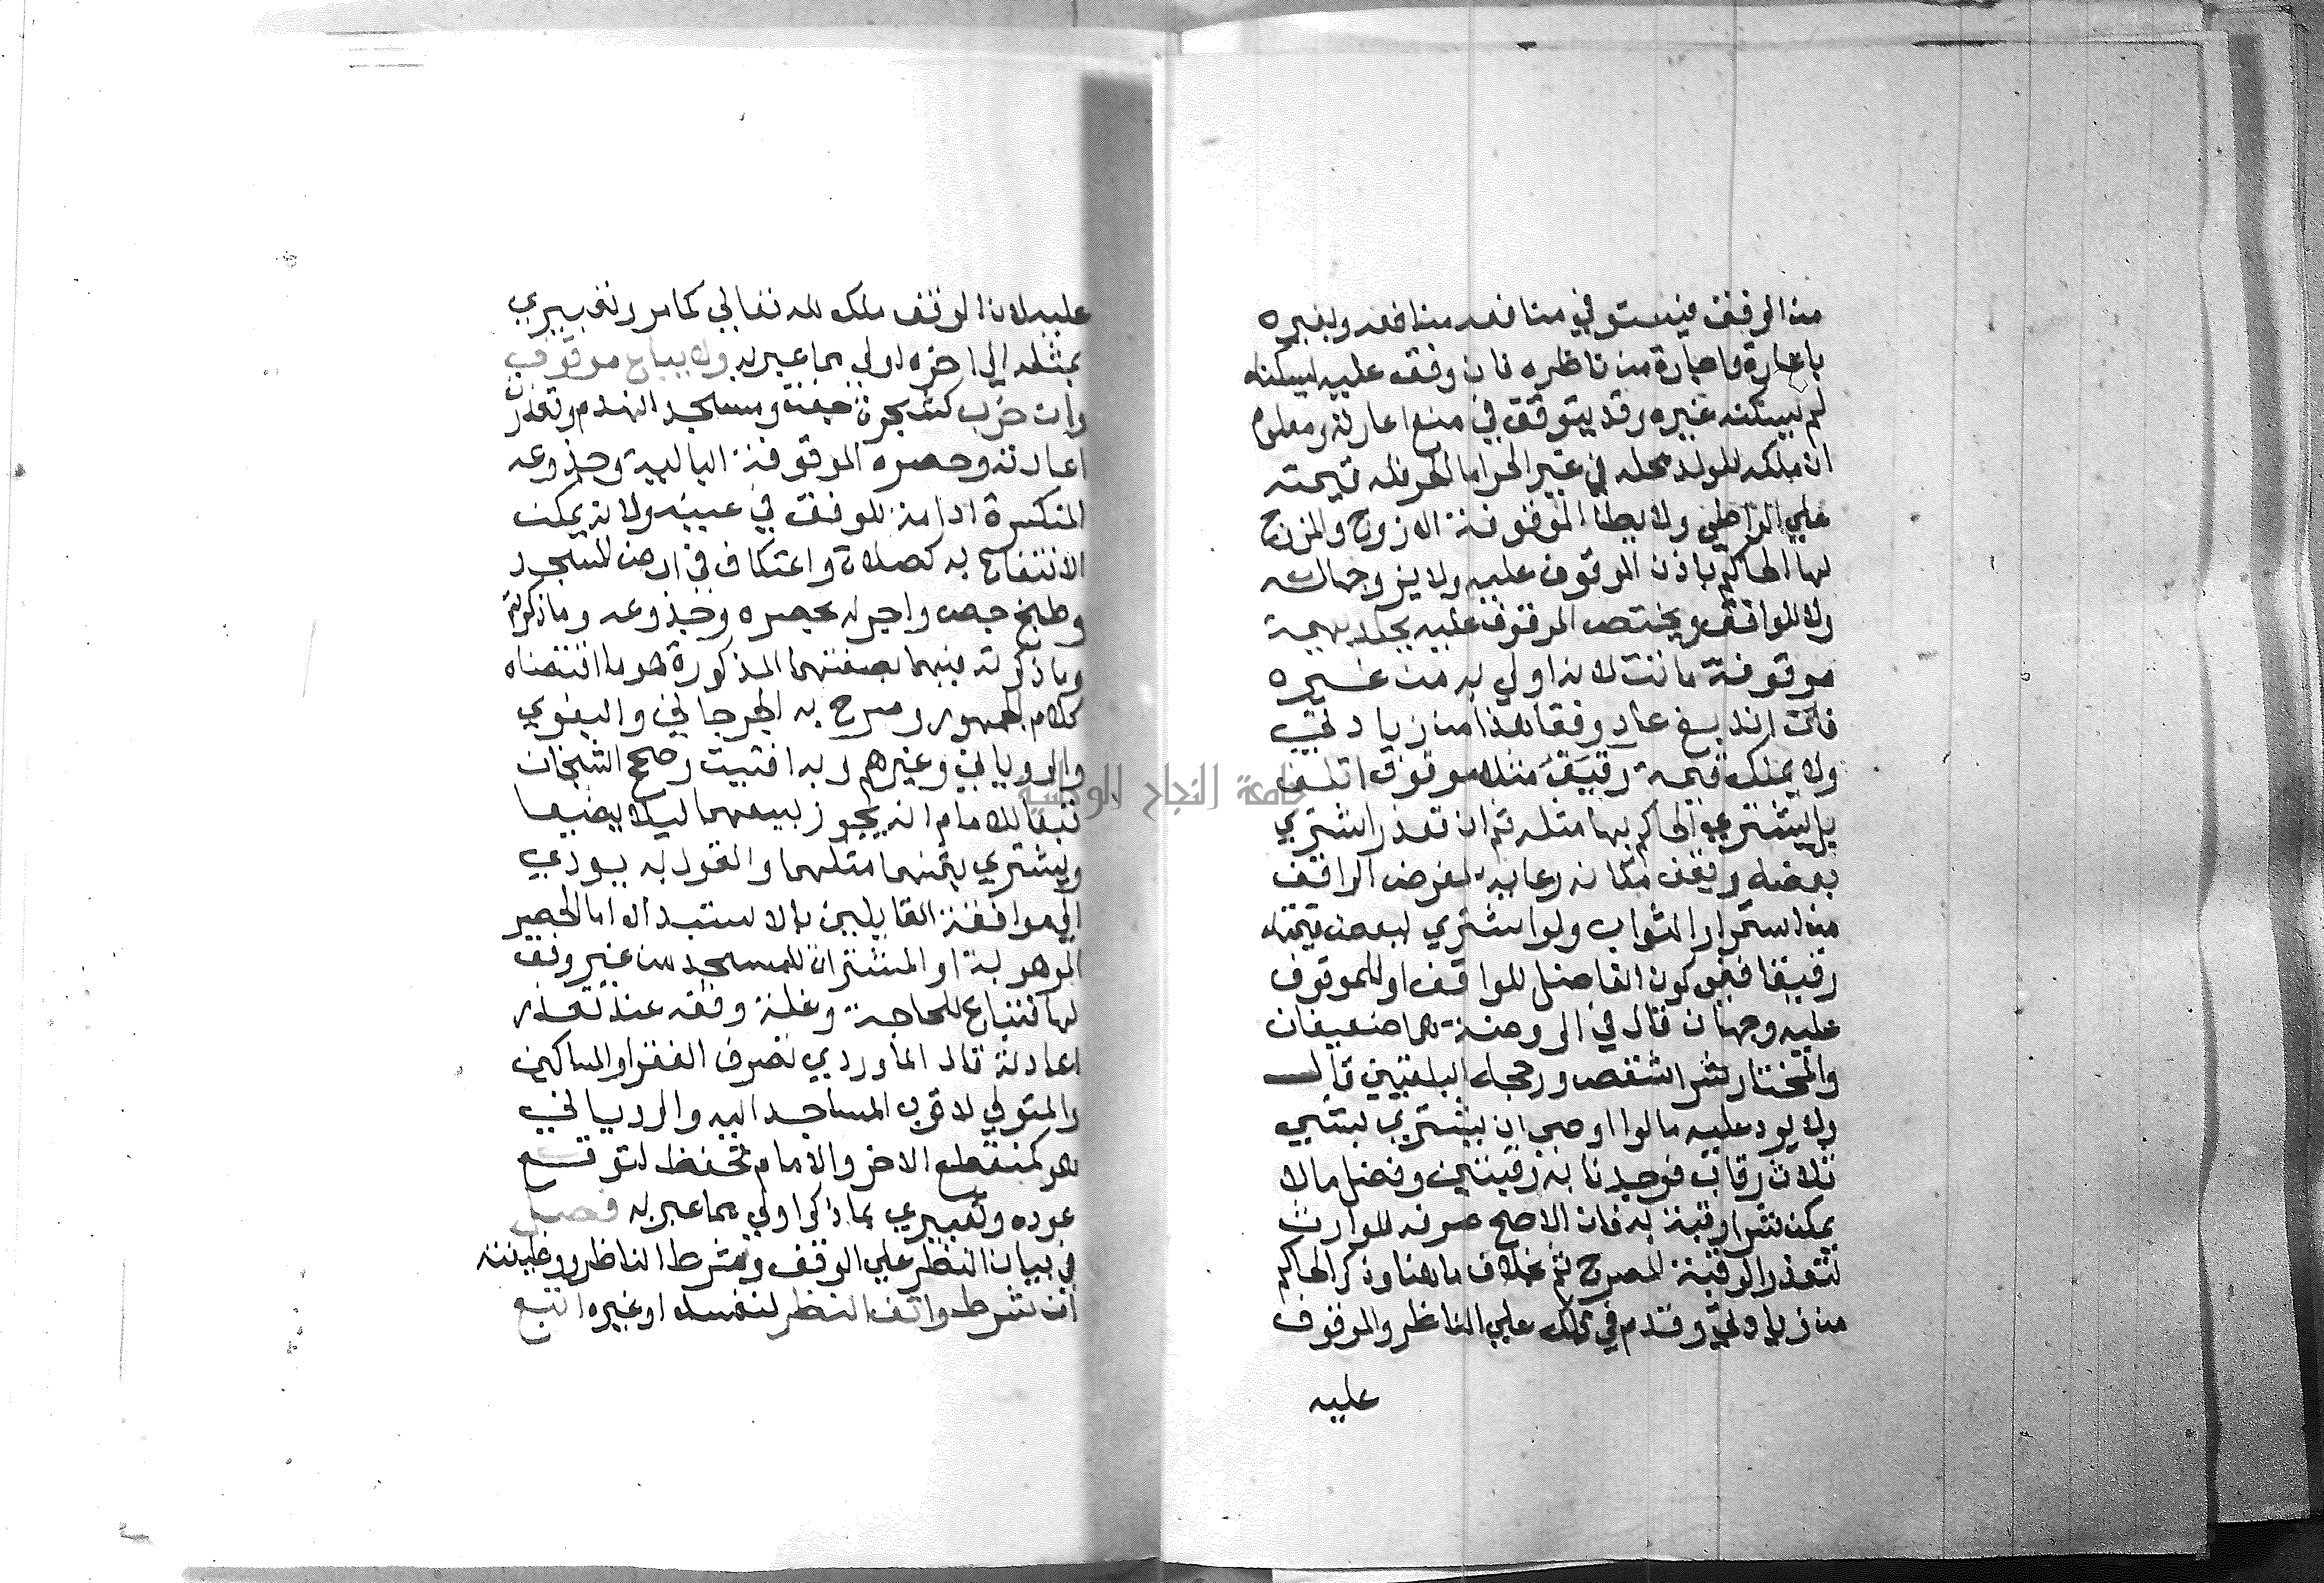 من الوقف فيستوفي منافعه بنفسه وبغيره
باعارة واجارة من ناظره فان وقف عليه ليسكنه
لم يسكنه غيره وقد يتوقف في منع اعارته ومعلوم
ان ملكه للولد محله في غير الحر اما الحر فله قيمته
علي الواطي ولا يطا الموقوفة الا زوج والمزوج
لها الحاكم باذن الموقوف عليه ولا يزوجها له
ولا للواقف ويختص الموقوف عليه بجلد بهيمة
موقوفة ماتت لانه اولي به من غيره
فان اندبغ عاد وقفا وهذا من زيادتي
ولا يملك قيمة رقيق مثلا موقوف اتلف
بل يشتري الحاكم بها مثله ثم ان تعذر اشتري
بعضه ويقف مكانه رعاية لغرض الواقف
من استمرار الثواب ولو اشتري ببعض قيمته
رقيقا ففي كون الفاضل للواقف او للموقوف
عليه وجهان قال في الروضة هما ضعيفان
والمختار شرا شقص ورجحه البلقيني قال
ولا يرد عليه ما لو اوصي ان يشتري بشي
ثلاث رقاب فوجدنا به رقبتين وفضل ما لا
يمكن شرا رقبة به فان الاصح صرفه للوارث
لتعذر الرقبة المصرح ثم بخلاف ما هنا وذكر الحاكم
من زيادتي وقدم في ذلك علي الناظر والموقوف
عليه
عليه لان الوقف ملك لله تعالي كما مر وتعبيري
بمثله الي اخره اولي مما عبر به ولا يباع موقوف
وان خرب كشجرة جفت ومسجد انهدم وتعذرت
اعادته وحصره الموقوفة البالية وجذوعه
المنكسرة ادامة للوقف في عينه ولانه يمكن
الانتفاع به كصلاة واعتكاف في ارض المسجد
وطبخ جص واجر له بحصره وجذوعه وما ذكرته
وما ذكرته فيهما بصفتهما المذكورة هو ما اقتضاه
كلام الجمهور وصرح به الجرجاني والبغوي
والروياني وغيرهم وبه افتيت وصحح الشيخان
تبعا للامام انه يجوز بيعهما ليلا يضيعا
ويشتري بثمنهما مثلهما والقول به يودي
الي موافقة القايلين بالاستبدال اما الحصير
الموهوبة او المشتراة للمسجد من غير وقف
لها فتباع للحاجة وغلة وقفه عند تعذر
اعادته قال الماوردي تصرف الفقرا والمساكين
والمتولي لاقرب المساجد اليه والروياني
هو كمنقطع الاخر والامام تحفظ لتوقع
عوده وتعبيري بما ذكر اولي مما عبر به فصل
في بيان النظر علي الوقف وشرط الناظر ووظيفته
ان شرط واقف النظر لنفسه او غيره اتبع
جامعة النجاح الوطنية